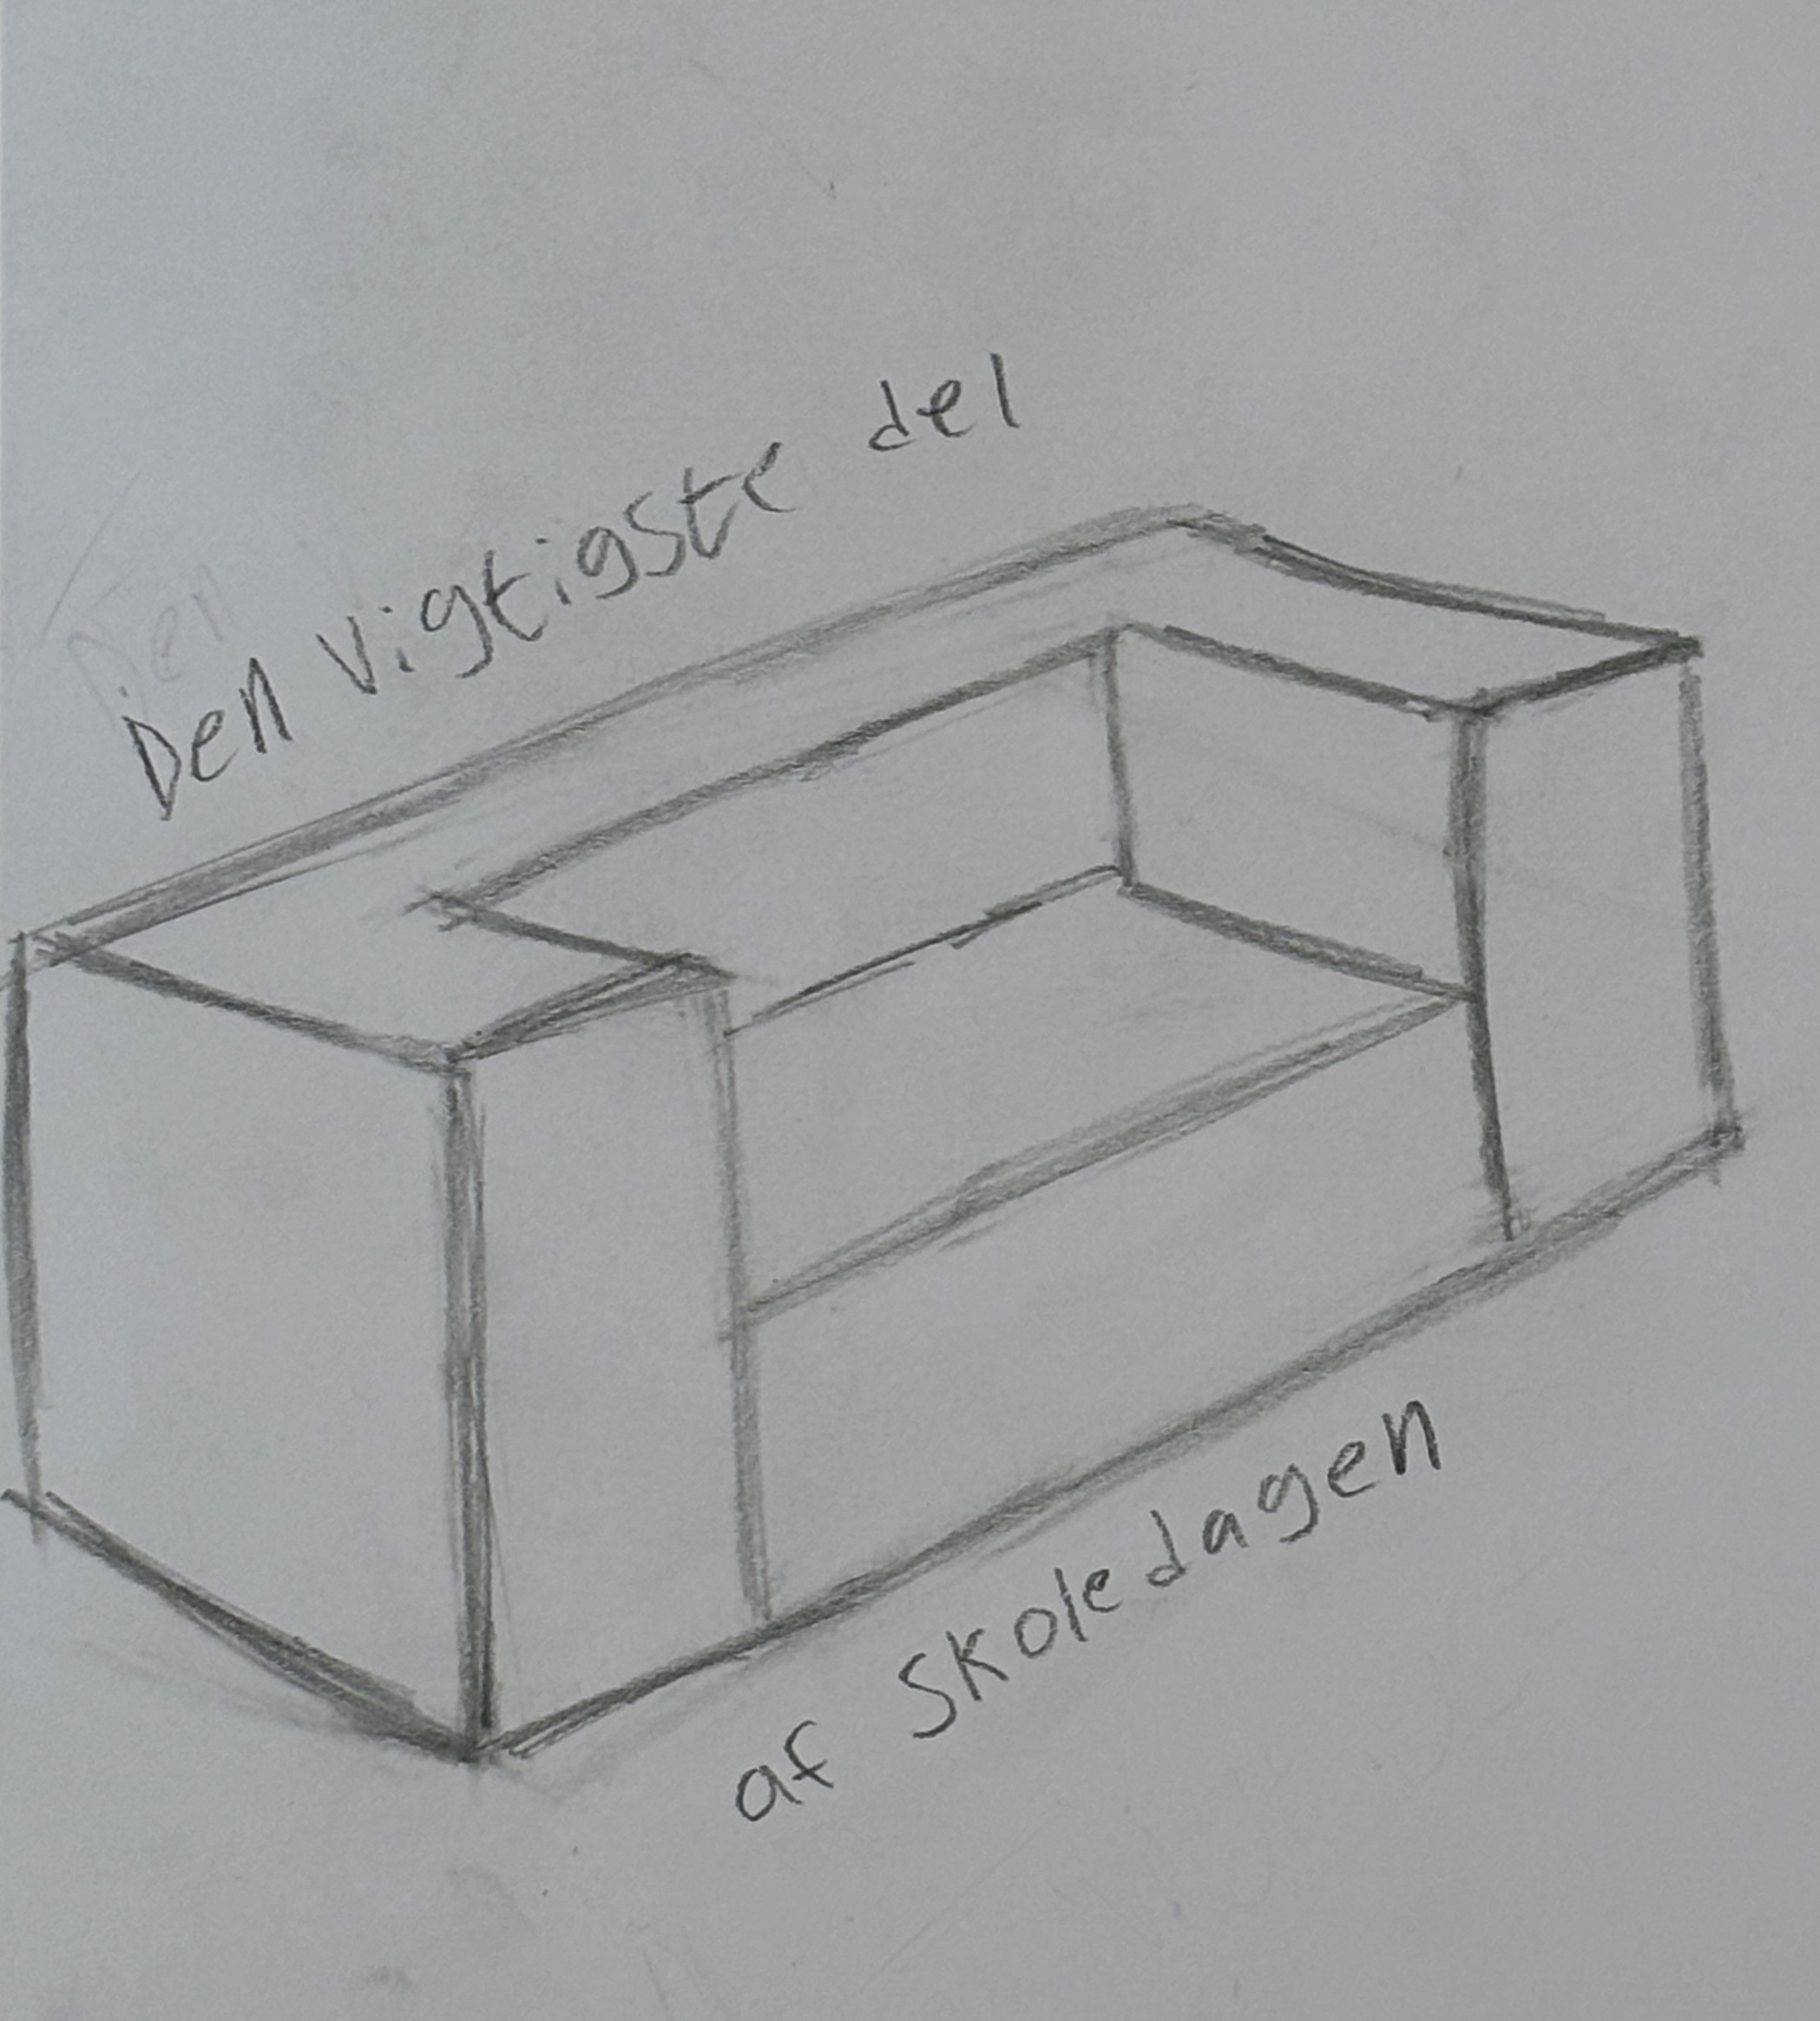 Den vigtigste del
af Skoledagen